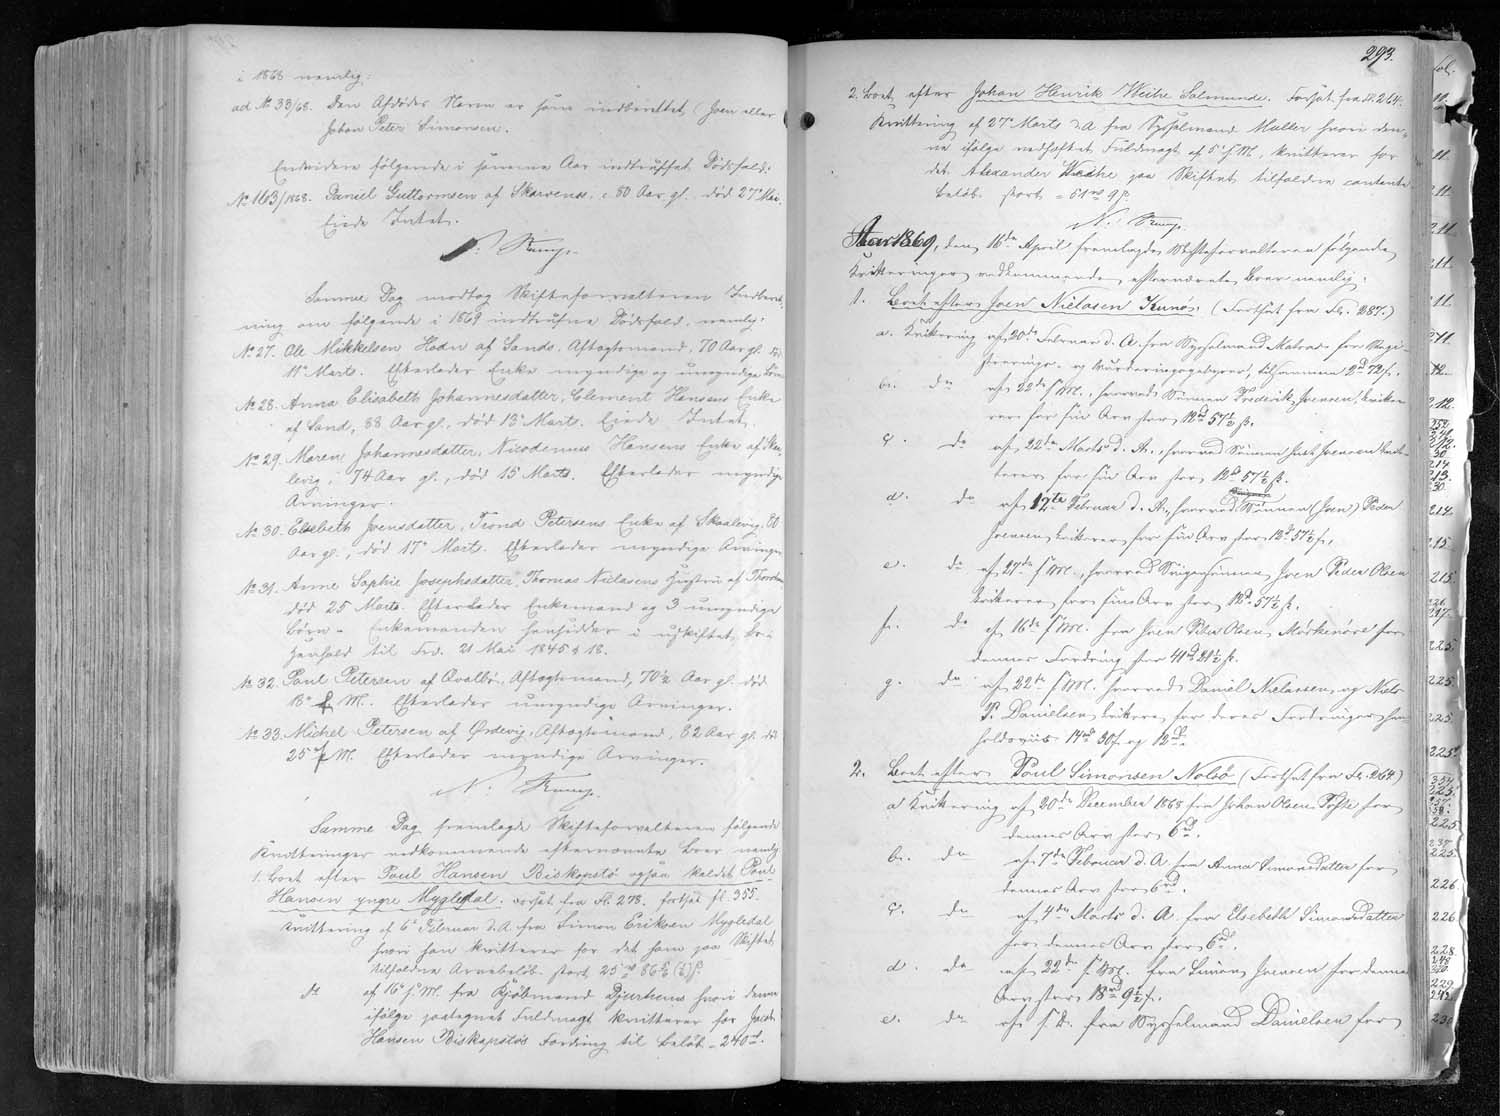 i 1868 nemlig:
ad No 33/68. Den Afdødes Navn er ikke indberettet (Joen eller
Johan Peter Simonsen.
Endvidere følgende i samme Aar indtruffet Dødsfald:
No 1103/1868. Daniel Guttormsen af Skarvenes, c 80 Aar gl. død 27 Mai.
Eiede Intet.
N. Krump.
Samme Dag modtog Skifteforvalteren Indberet-
ning om følgende i 1869 indtrufne Dødsfald, nemlig:
No 27. Ole Mikkelsen Hodn af Sands. Aftægtsmand, 70 Aar gl. død
11te Marts. Efterlader Enke myndige og umyndige Børn
No 28. Anna Elisabeth Johannesdatter, Clement Hansens Enke
af Sand, 88 Aar gl., død 13de Marts. Eiede Intet.
No 29. Maren Johannesdatter, Nicodemus Hansens Enke af Skaa-
levig, 74 Aar gl., død 15 Marts. Efterlader myndige
Arvinger.
No 30. Elsebeth Joensdatter, Trond Petersens Enke af Skaalevig, 80
Aar gl., død 17de Marts. Efterlader myndige Arvinger
No 31. Anne Sophie Josephsdatter Thomas Niclasens Hustru af Thorshavn
død 25 Marts. Efterlader Enkemand og 3 umyndige
Børn - Enkemanden hensidder i uskiftet Bo i
Henhold til Frd. 21 Mai 1845 § 18.
No 32. Paul Petersen af Qvalbø. Aftægtsmand, 70½ Aar gl. død
13de f. M. Efterlader umyndige Arvinger.
No 33. Michel Petersen af Ørdevig, Aftægtsmand, 82 Aar gl. død
25 f M. Efterlader myndige Arvinger.
N. Krump.
Samme Dag fremlagde Skifteforvalteren følgende
Kvitteringer vedkommende efternævnte Boer nemlig
1. Boet efter Poul Hansen Biskopstø ogsaa kaldet Poul
Hansen yngre Mygledal. fortsat fra Fl. 278. fortsat fl. 355.
Kvittering af 6te Februar d. A. fra Simon Eriksen Mygledal
hvori han kvitterer for det ham paa Skiftet
tilfaldne Arvebeløb. stort 25 rd 86
do af 16de f. M. fra Kjøbmand Djurhuus hvori denne
ifølge paategnet Fuldmagt kvitterer for Jacob
Hansen Biskopstøs Fordring til Beløb - 240 rd.
293.
2. Boet efter Johan Henrik Weihe Solmunde. Fortsat fra Fl. 264.
Kvittering af 27de Marts d. A fra Sysselmand Müller hvori den-
ne ifølge vedhæftet Fuldmagt af 5te f. M., kvitterer for
det Alexander Weihe paa Skiftet tilfaldne contante
Beløb stort - 61 rd 9 ß.
N. Krump.
Aar 1869, den 16de April fremlagde Skifteforvalteren følgende
Kvitteringer vedkommende efternævnte Boer nemlig:
1. Boet efter Joen Nielasen Kunø. (Fortsat fra Fl. 287.)
a. Kvittering af 20de Februar d. A. fra Sysselmand Matras for Regi-
sterings- og Vurderingsgebyrer, tilsammen 2 rd 72 ß.
b. do af 22de f. M., hvorved Sønnen Frederik Joensen kvitte-
rer for sin Arv stor 12 rd 57½ ß.
c. do af 22de Marts d. A., hvorved Sønnen Joensen kvit-
terer for sin Arv stor 12 rd 57½ ß.
d. do af 12te Februar d. A., hvorved Sønnen (Joen) Peder
Joensen kvitterer for sin Arv stor 12 rd 57½ ß.
e. do af 27de f. M., hvorved Svigersønnen Joen Peder Olsen
kvitterer for sin Arv stor 12 rd 57½ ß.
f. do af 16de f. M. fra Joen Peder Olsen Mørkenøre for
dennes Fordring stor 41 rd 21½ ß.
g. do af 22de f. M. hvorved Daniel Nielassen og Niels
P. Danielsen kvittere for deres Fordringer hen-
holdsviis 14 rd 30 ß og 12 rd.
2. Boet efter Poul Simonsen Nolsø (Fortsat fra Fl. 264)
a. Kvittering af 20de December 1868 fra Johan Olsen Tofte for
dennes Arv stor 6 rd.
b. do af 7de Februar d. A. fra Anna Simonsdatter for
dennes Arv stor 6 rd.
c. do af 4de Marts d. A. fra Elsebeth Simonsdatter
for dennes Arv stor 6 rd.
d. do af 22de f. M. fra Simon Joensen for dennes
Arv stor 13 rd 9½ ß.
e. do af s. D. fra Sysselmand Danielsen for